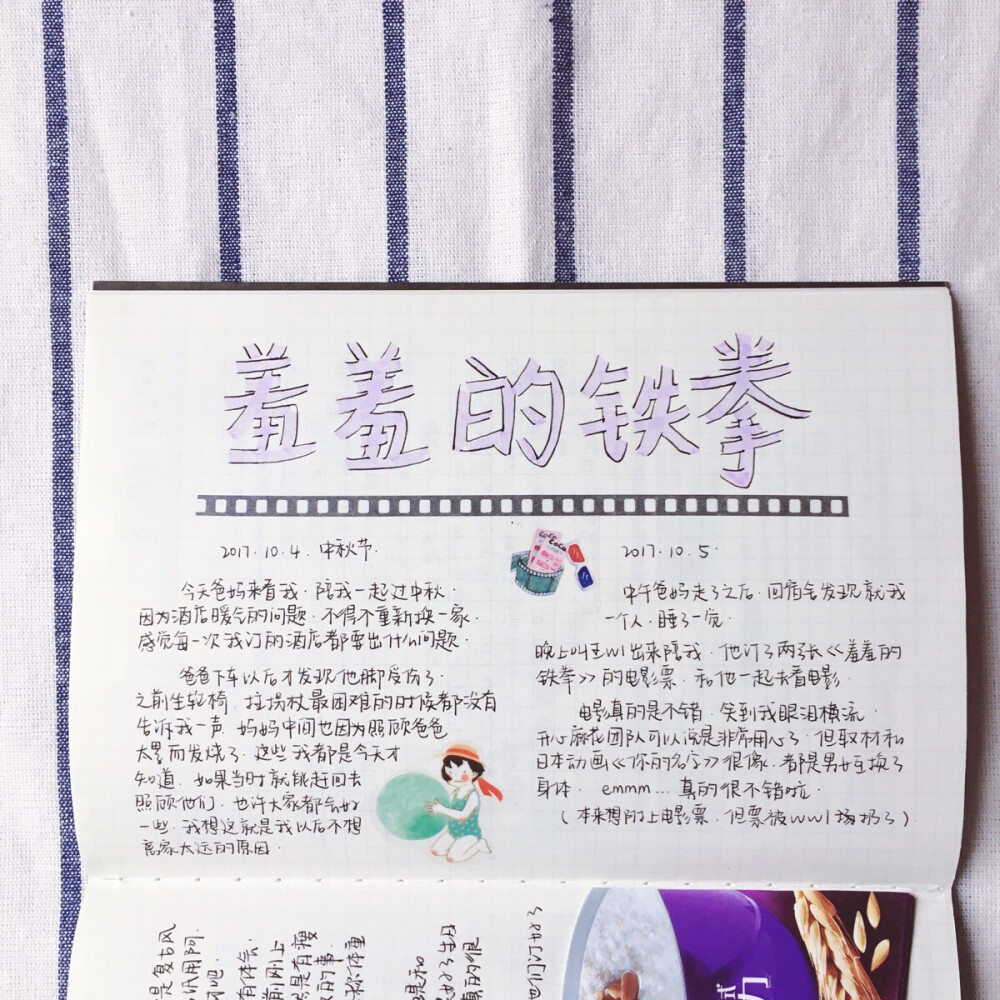 羞羞的铁拳
2017.10.4.中秋节.
今天爸妈来看我.陪我一起过中秋.
因为酒店暖气的问题.不得不重新换一家.
感觉每一次我订的酒店都要出什么问题.
爸爸下车以后才发现他脚受伤了.
之前坐轮椅.拄拐杖最困难的时候都没有
告诉我一声.妈妈中间也因为照顾爸爸
太累而发烧了.这些我都是今天才
知道.如果当时就能赶回去
照顾他们.也许大家都会好
一些.我想这就是我以后不想
离家太远的原因.
2017.10.5.
中午爸妈走了之后.回宿舍发现就我
一个人.睡了一觉.
晚上叫王WL出来陪我.他订了两张《羞羞的
铁拳》的电影票.和他一起去看电影.
电影真的是不错.笑到我眼泪横流.
开心麻花团队可以说是非常用心了.但取材和
日本动画《你的名字》很像.都是男女互换了
身体. emmm...真的很不错啦.
(本来想附上电影票.但票被WWL扬扔了)
是复古风
纸用阿.
吧.
有体氣.
前刚上
是有瘦
的事.
称体重
电是和
真的很